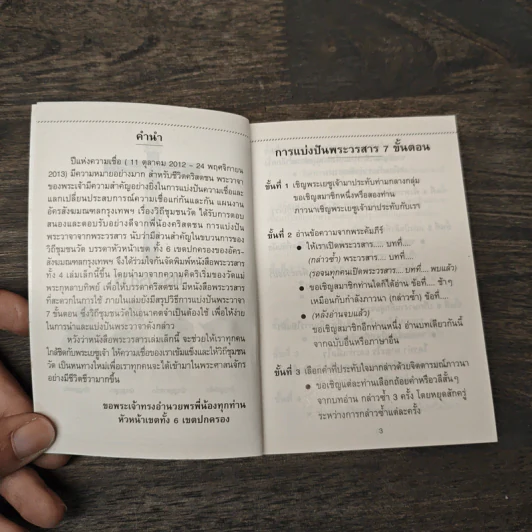 คำนำ
ปีแห่งความเชื่อ ( 11 ตุลาคม 2012 - 24 พฤศจิกายน
2013) มีความหมายอย่างมาก สำหรับชีวิตคริสตชน พระวาจา
ของพระเจ้ามีความสำคัญอย่างยิ่งในการแบ่งปันความเชื่อและ
แลกเปลี่ยนประสบการณ์ความเชื่อแก่กันและกัน แผนงาน
อัครสังฆมณฑลกรุงเทพฯ เรื่องวิถีชุมชนวัด ได้รับการตอบ
สนองและตอบรับอย่างดีจากพี่น้องคริสตชน การแบ่งปัน
พระวาจาจากพระวรสาร นับว่ามีส่วนสำคัญในขบวนการของ
วิถีชุมชนวัด บรรดาหัวหน้าเขต ทั้ง 6 เขตปกครองของอัคร-
สังฆมณฑลกรุงเทพฯ จึงได้ร่วมใจกันจัดพิมพ์หนังสือพระวรสาร
ทั้ง 4 เล่มเล็กนี้ขึ้น โดยนำมาจากความคิดริเริ่มของวัดแม่
พระกุหลาบทิพย์ เพื่อให้บรรดาคริสตชน มีหนังสือพระวรสาร
ที่สะดวกในการใช้ ภายในเล่มยังมีสรุปวิธีการแบ่งปันพระวาจา
7 ขั้นตอน ซึ่งวิถีชุมชนวัดในอนาคตจำเป็นต้องใช้ เพื่อให้ง่าย
ในการนำและแบ่งปันพระวาจาดังกล่าว
หวังว่าหนังสือพระวรสารเล่มเล็กนี้ จะช่วยให้เราทุกคน
ใกล้ชิดกับพระเยซูเจ้า ให้ความเชื่อของเราเข้มแข็งและให้วิถีชุมชน
วัด เป็นหนทางใหม่เพื่อเราทุกคนจะได้เข้ามาในพระศาสนจักร
อย่างมีชีวิตชีวามากขึ้น
ขอพระเจ้าทรงอำนวยพรพี่น้องทุกท่าน
หัวหน้าเขตทั้ง 6 เขตปกครอง
การแบ่งปันพระวรสาร 7 ขั้นตอน
ขั้นที่ 1 เชิญพระเยซูเจ้ามาประทับท่ามกลางกลุ่ม
ขอเชิญสมาชิกหนึ่งหรือสองท่าน
ภาวนาเชิญพระเยซูเจ้ามาประทับกับเรา
ขั้นที่ 2 อ่านข้อความจากพระคัมภีร์
● ให้เราเปิดพระวรสาร.... บทที่....
(กล่าวซ้ำ) พระวรสาร.... บทที่....
(รอจนทุกคนเปิดพระวรสาร.... บทที่.... พบแล้ว)
● ขอเชิญสมาชิกท่านใดก็ได้อ่าน ข้อที่.... ช้าๆ
เหมือนกับกำลังภาวนา (กล่าวซ้ำ) ข้อที่....
● (หลังอ่านจบแล้ว)
ขอเชิญสมาชิกอีกท่านหนึ่ง อ่านบทเดียวกันนี้
จากฉบับอื่นหรือภาษาอื่น
ขั้นที่ 3 เลือกคำที่ประทับใจมากล่าวด้วยจิตตารมณ์ภาวนา
● ขอเชิญแต่ละท่านเลือกถ้อยคำหรือวลีสั้นๆ
จากบทอ่าน กล่าวซ้ำ 3 ครั้ง โดยหยุดสักครู่
ระหว่างการกล่าวซ้ำแต่ละครั้ง
3